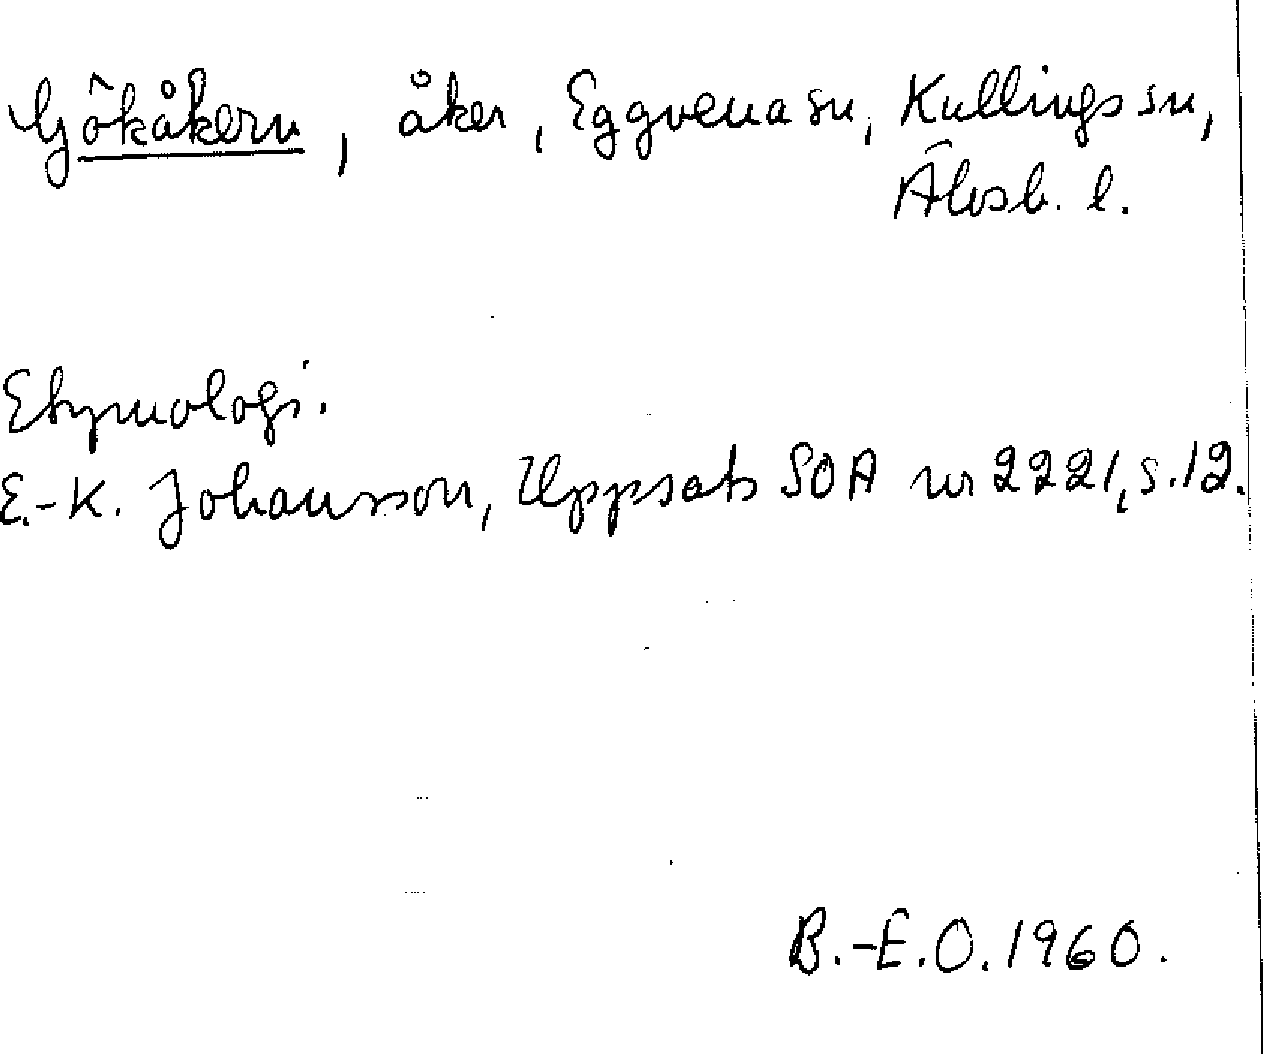 Gökåkern, åker, Eggvena sn, Kullings sn,
Älvsb. l.
Etymologi.
E.-K. Johansson, Uppsats SOA nr 2221, s. 12.
B.-E.O. 1960.